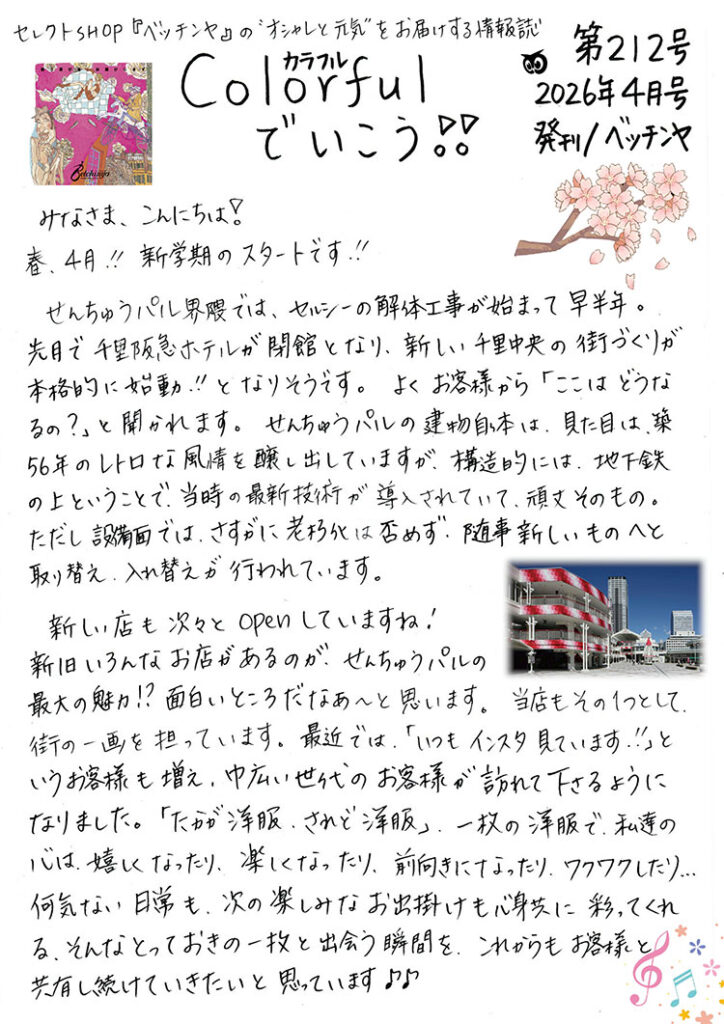 セレクトSHOP『ベッチンヤ』の〝オシャレと元気〟をお届けする情報誌
カラフル
Colorful
でいこう!!
第212号
2026年4月号
発刊/ベッチンヤ
Betchinya
みなさま、こんにちは!
春、4月!! 新学期のスタートです!!
せんちゅうパル界隈では、セルシーの解体工事が始まって早半年。
先月で千里阪急ホテルが閉館となり、新しい千里中央の街づくりが
本格的に始動!!となりそうです。 よくお客様から「ここはどうな
るの?」と聞かれます。 せんちゅうパルの建物自体は、見た目は、築
56年のレトロな風情を醸し出していますが、構造的には、地下鉄
の上ということで、当時の最新技術が導入されていて、頑丈そのもの。
ただし設備面では、さすがに老朽化は否めず、随事新しいものへと
取り替え、入れ替えが行われています。
新しい店も次々とopenしていますね!
新旧いろんなお店があるのが、せんちゅうパルの
最大の魅力!?面白いところだなあ〜と思います。 当店もその1つとして、
街の一画を担っています。最近では、「いつもインスタ見ています!!」と
いうお客様も増え、巾広い世代のお客様が訪れて下さるように
なりました。「たかが洋服、されど洋服」、一枚の洋服で、私達の
心は、嬉しくなったり、楽しくなったり、前向きになったり、ワクワクしたり…
何気ない日常も、次の楽しみなお出掛けも心身共に彩ってくれ
る、そんなとっておきの一枚と出会う瞬間を、これからもお客様と
共有し続けていきたいと思っています♪♪